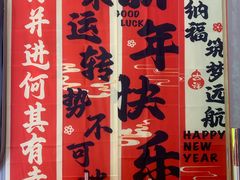 并进何其有幸
来运转势不可
GOOD LUCK
新年快乐
纳福
筑梦远航
HAPPY
NEW
YEAR